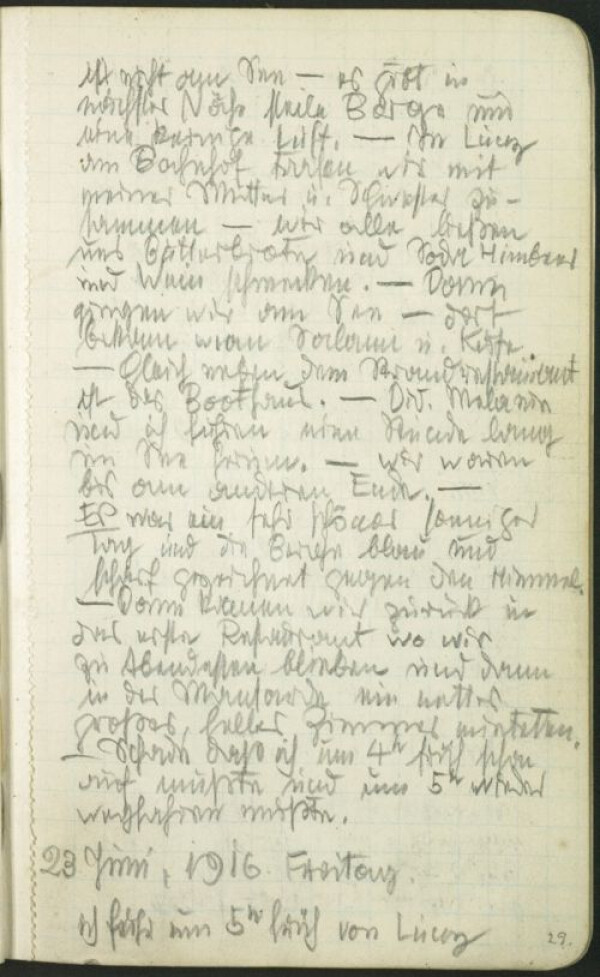 ist nicht am See — es gibt in
nächster Nähe steile Berge und
eine Luft. — In Lunz
am Bahnhof trafen wir mit
meiner Mutter u. Schwester zu-
sammen — wir alle ließen
uns Butterbrote und Soda Himbeer
und Wein schmecken. — Dann
gingen wir am See — dort
bekam man Salami u. Käse
— Gleich neben dem Strandrestaurant
ist das Boothaus. — Did. Melanie
und ich fuhren eine Stunde lang
im See herum. — wir waren
bis am anderen Ende. —
ES war ein sehr schöner sonniger
Tag und die Berge blau und
scharf gezeichnet gegen den Himmel.
— Dann kamen wir zurück in
das erste Restaurant wo wir
zu Abendessen blieben und dann
in der Mansarde ein nettes
großes, helles Zimmer mieteten.
— Schade daß ich um 4h früh schon
auf mußte und um 5h wieder
wegfahren mußte.
23 Juni, 1916. Freitag.
ich fuhr um 5h früh von Lunz
29.